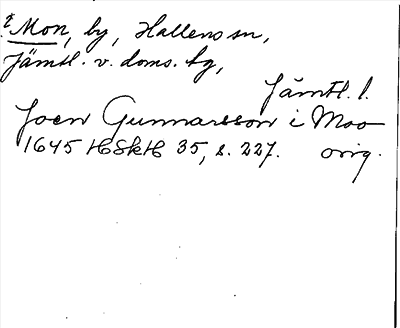 Mon, by, Hallens sn,
Jämtl. v. doms. tg,
Jämtl. l.
Joen Gunnarsson i Moo
1645 HSkH 35, s. 227. orig.